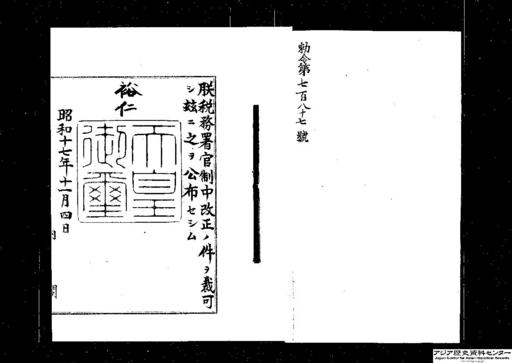 勅令第七百八十七號
朕税務署官制中改正ノ件ヲ裁可
シ茲ニ之ヲ公布セシム
裕仁
天皇
御璽
昭和十七年十一月四日
アジア歴史資料センター
Japan Center for Asian Historical Records